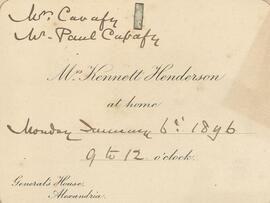 Mr. Cavafy
Mr. Paul Cavafy
Mrs Kennett Henderson
at home
Monday January 6th 1896
9 to 12 o'clock.
General's House,
Alexandria.